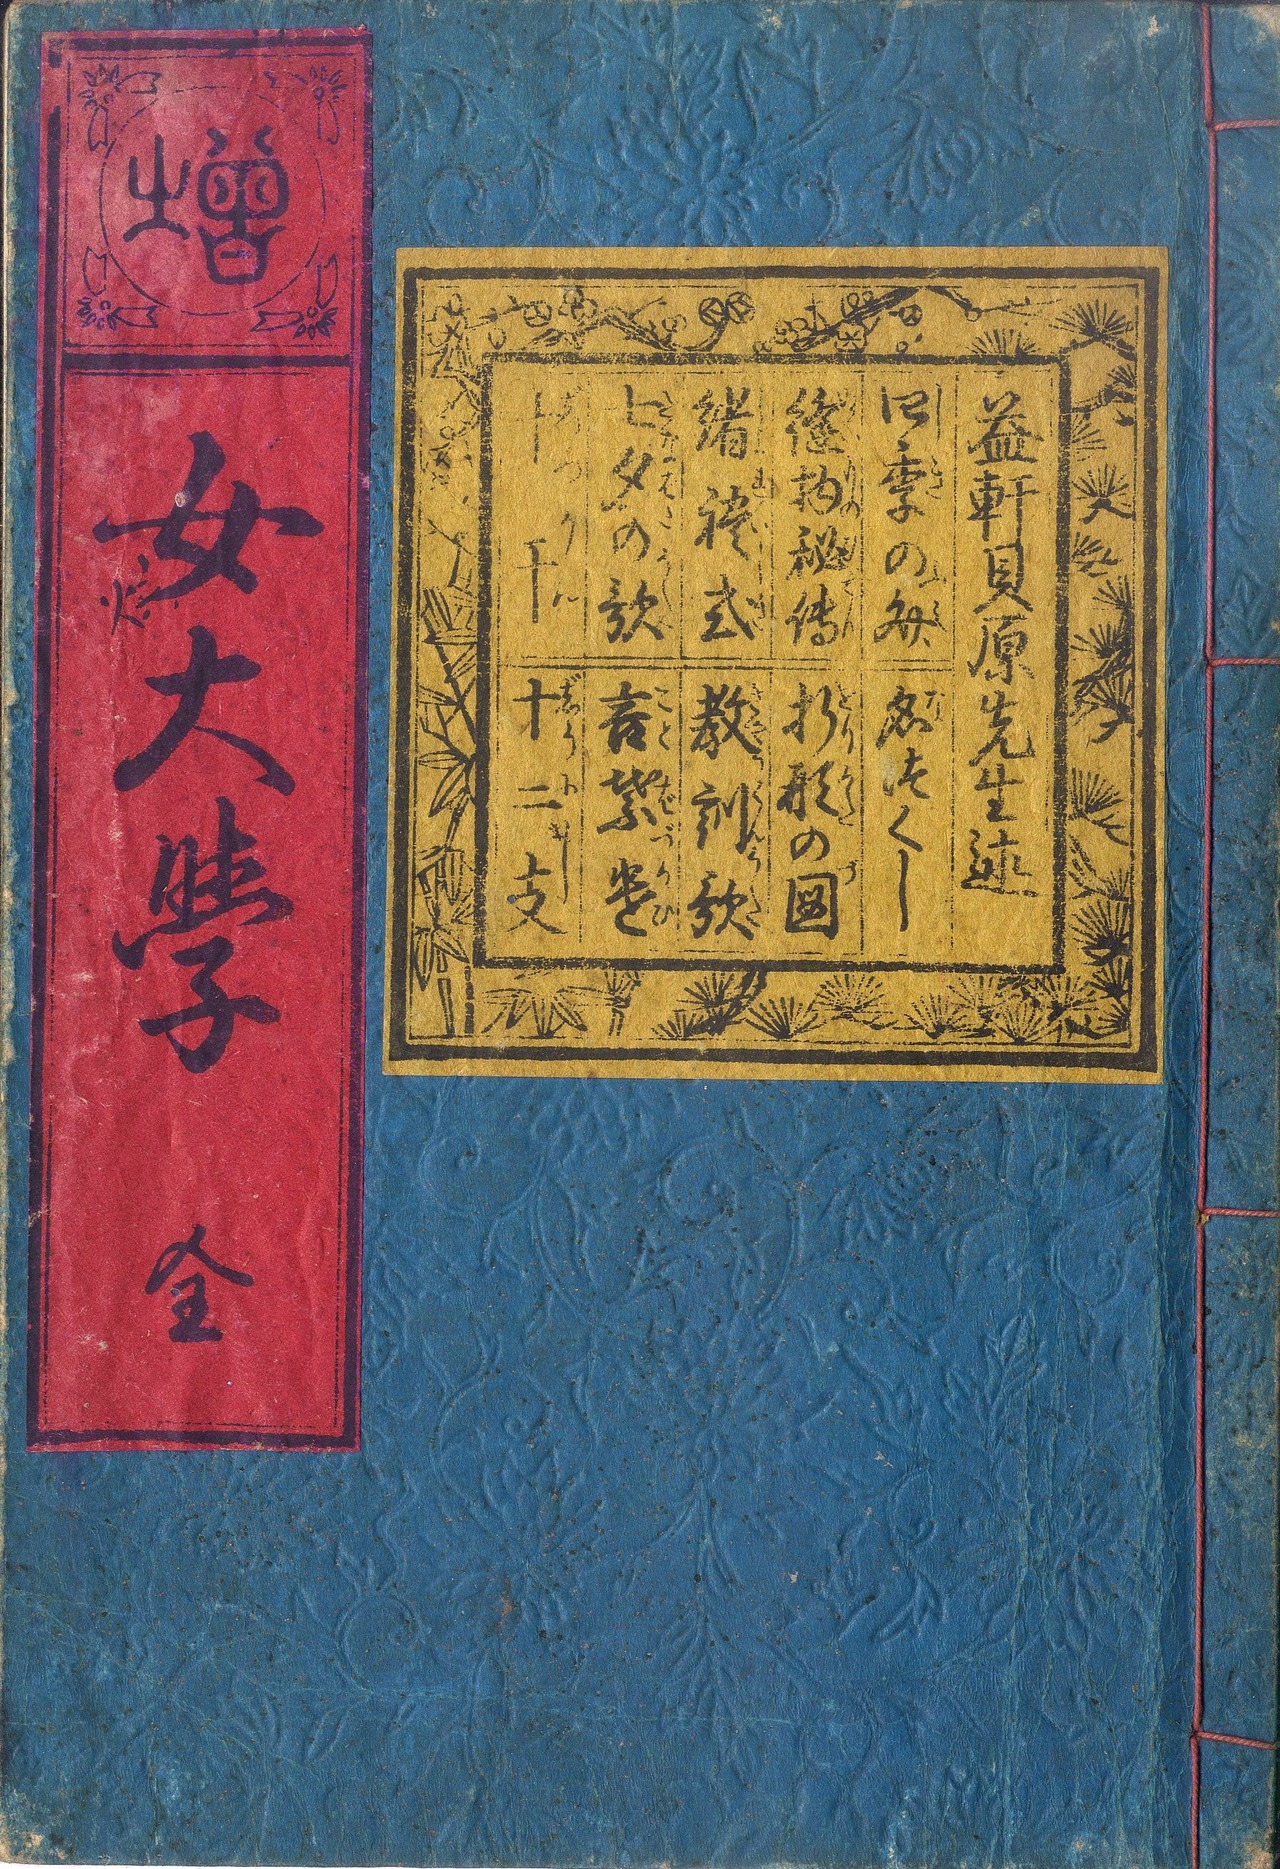 益軒貝原先生述
四季の文
名尽くし
縫物秘伝
折形の図
諸礼式
教訓歌
七夕の歌
言葉遣
十干
十二支
増
女大學
全